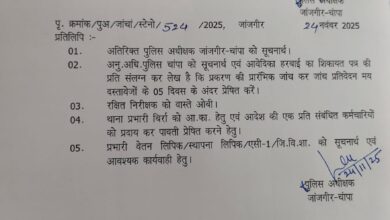 पुलिस अधीक्षक
जांजगीर-चांपा
पृ. क्रमांक/पुअ/जांचां/स्टेनो/ 524 /2025, जांजगीर 24 नवंबर 2025
प्रतिलिपि :-
01. अतिरिक्त पुलिस अधीक्षक जांजगीर-चांपा को सूचनार्थ।
02. अनु.अधि.पुलिस चांपा को सूचनार्थ एवं आवेदिका हरबाई का शिकायत पत्र की
प्रति संलग्न कर लेख है कि प्रकरण की प्रारंभिक जांच कर जांच प्रतिवेदन मय
दस्तावेजो के 05 दिवस के अंदर प्रेषित करें।
03. रक्षित निरीक्षक को वास्ते ओबी।
04. थाना प्रभारी बिर्रा को आ.का. हेतु एवं आदेश की एक प्रति संबंधित कर्मचारियों
को प्रदाय कर पावती प्रेषित करने हेतु।
05. प्रभारी वेतन लिपिक/स्थापना लिपिक/एसी-1/जि.वि.शा. को सूचनार्थ एवं
आवश्यक कार्यवाही हेतु।
24/11/25
पुलिस अधीक्षक